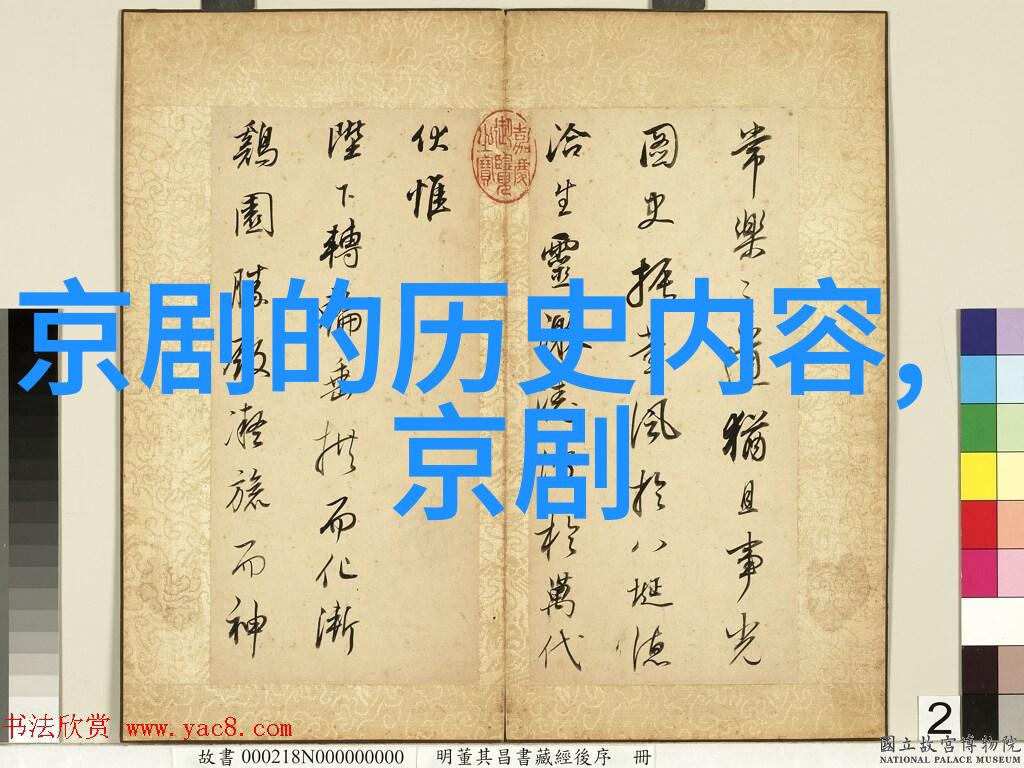 常樂之道猶且事光
圖史振薰風於八埏德
洽生靈激於萬代
伏惟
陛下轉輪垂拱而化漸
鷄園勝殿凝旒而神
嘉慶御覽之寶
京剧的历史内容,
京剧
2
书法欣赏 www.yac8.com
故書 000218N000000000 明董其昌書藏經後序 冊
國立故宮博物院
NATIONAL PALACE MUSEUM